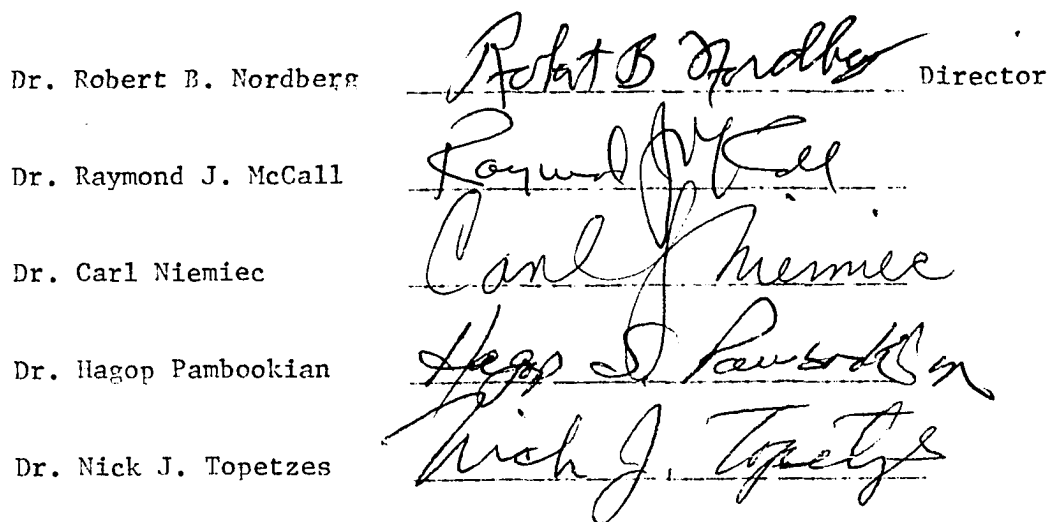 Dr. Robert B. Nordberg Robert B Nordberg Director
Dr. Raymond J. McCall Raymond J McCall
Dr. Carl Niemiec Carl J Niemiec
Dr. Hagop Pambookian Hagop S. Pambookian
Dr. Nick J. Topetzes Nick J. Topetzes